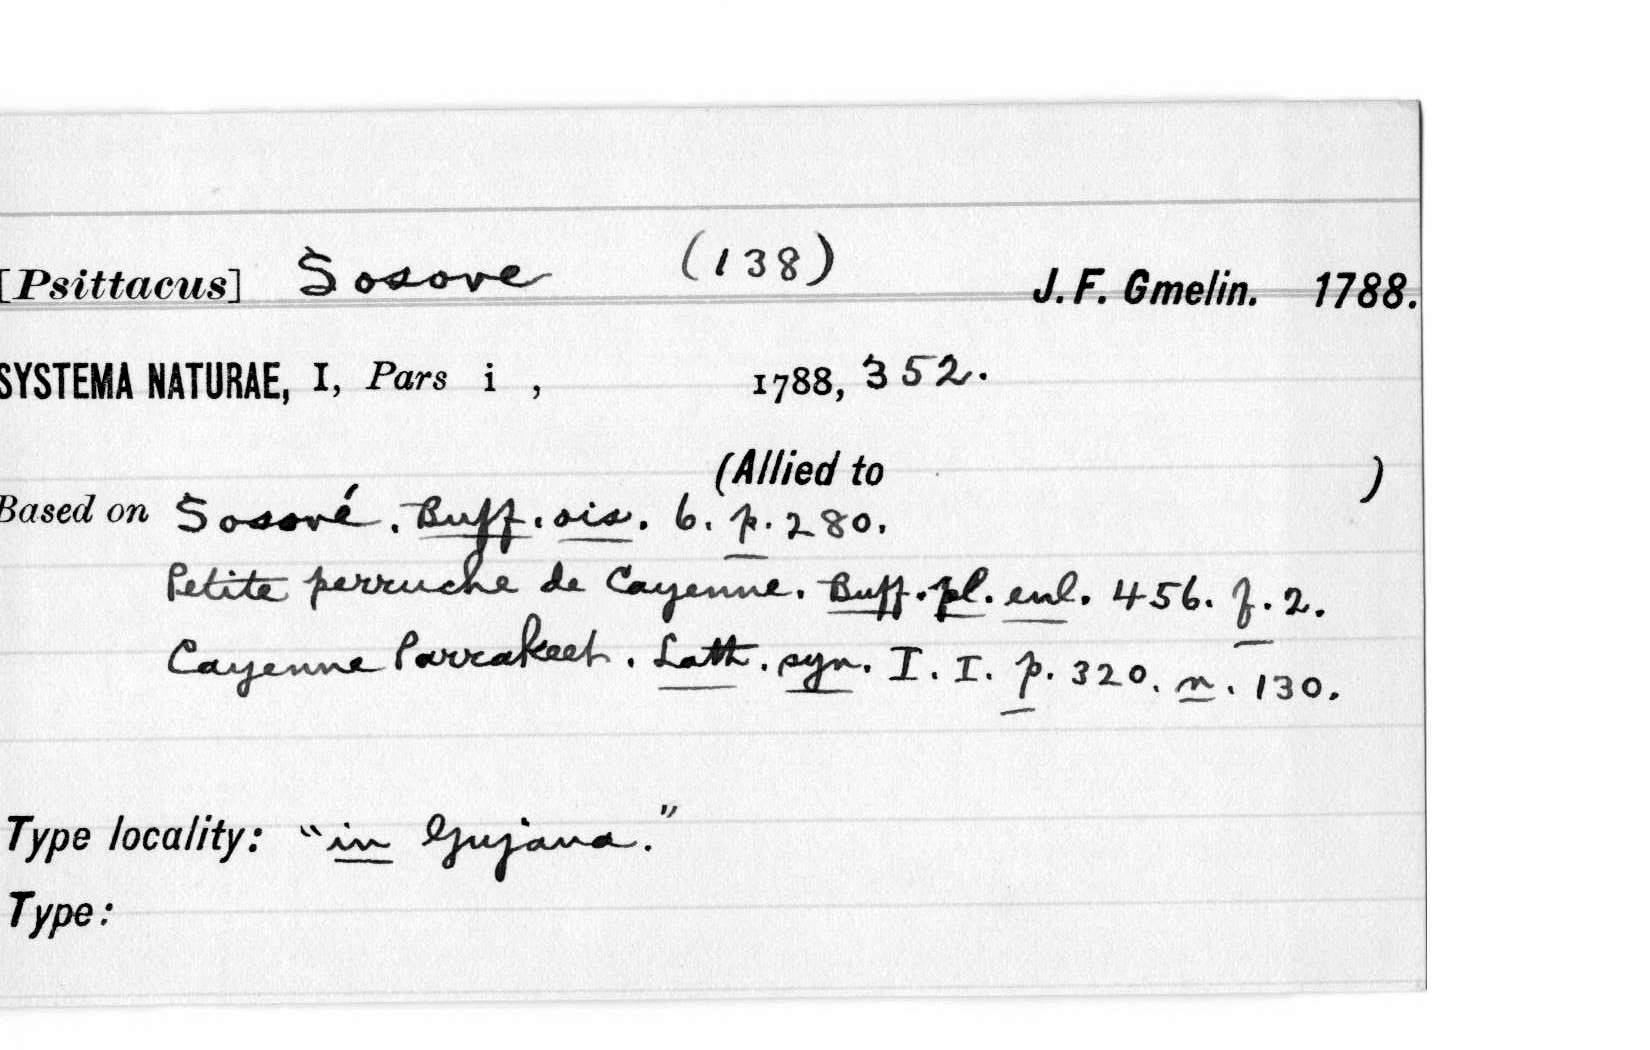 [Psittacus] Sosove (138) J. F. Gmelin. 1788.
SYSTEMA NATURAE, I, Pars i , 1788, 352.
(Allied to )
Based on Sosové. Buff. ois. 6. p. 280.
Petite perruche de Cayenne. Buff. pl. enl. 456. f. 2.
Cayenne Parrakeet. Lath. syn. I. I. p. 320. n. 130.
Type locality: "in Gujana."
Type: